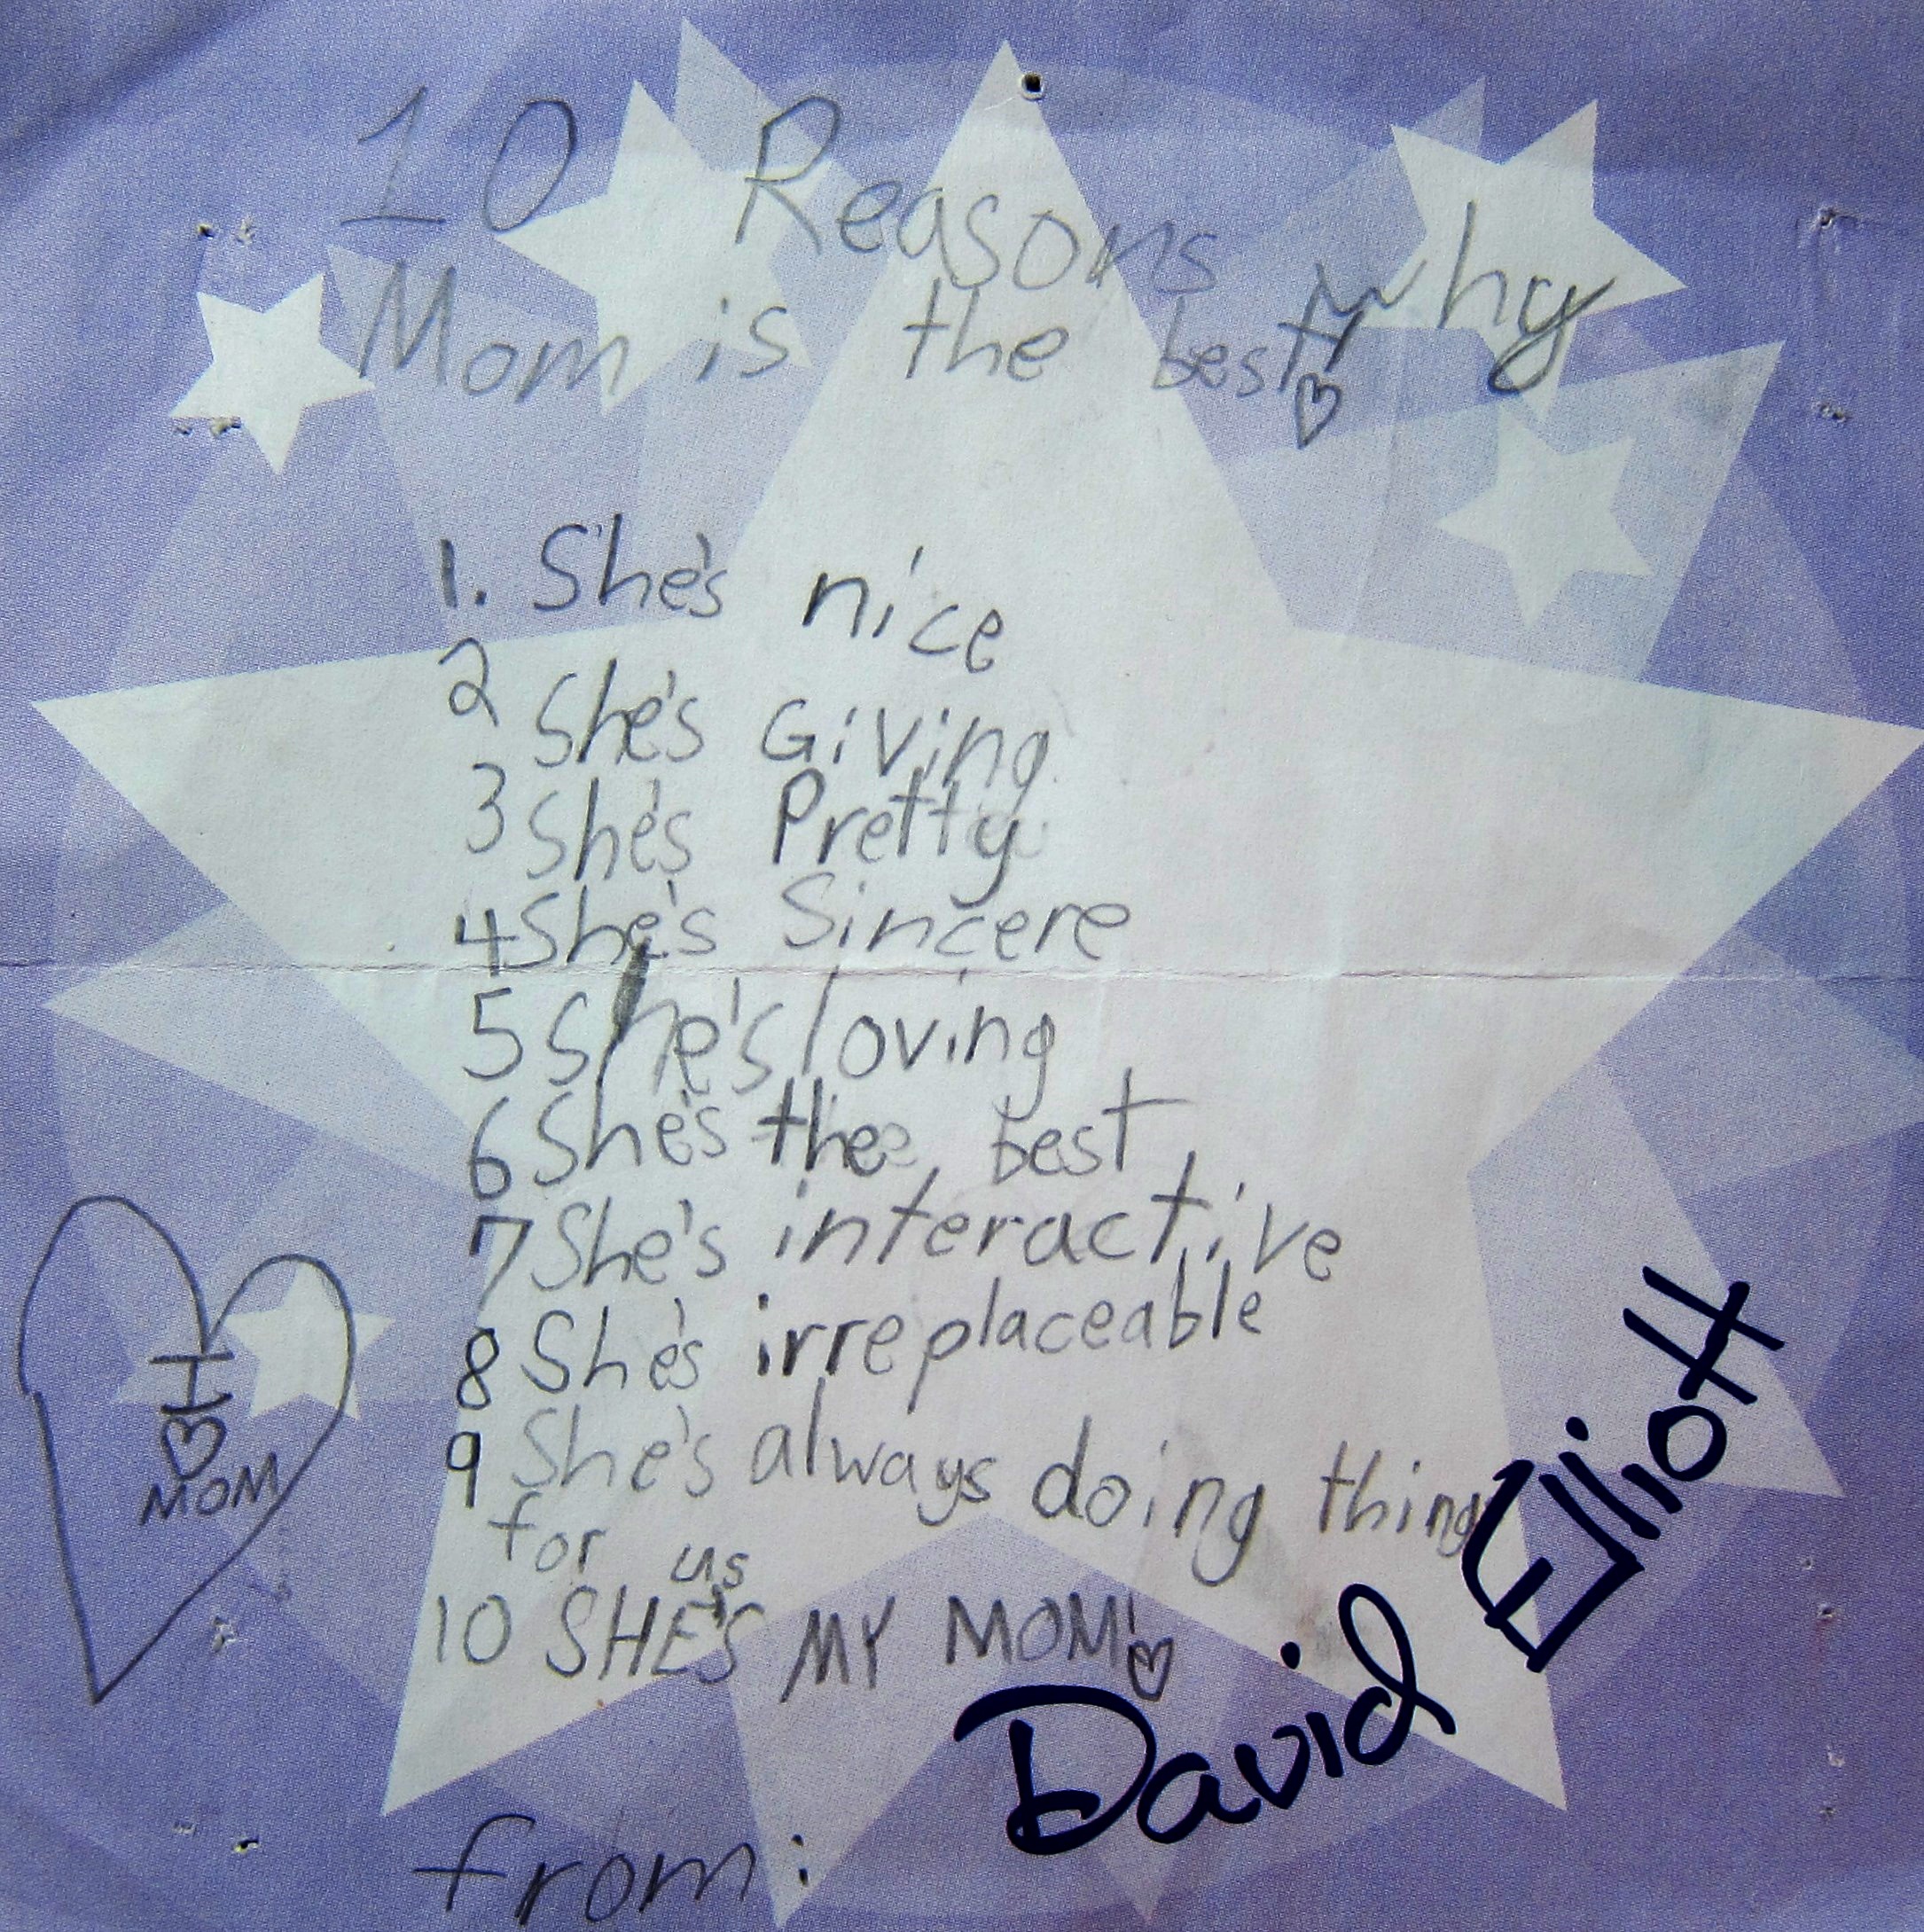 10 Reasons why
Mom is the best!
1. She's nice
2 She's Giving
3 She's Pretty
4 She's Sincere
5 She's loving
6 She's the best
7 She's interactive
8 She's irreplaceable
9 She's always doing thing
for us
10 SHE'S MY MOM!
I
MOM
from: David Elliott